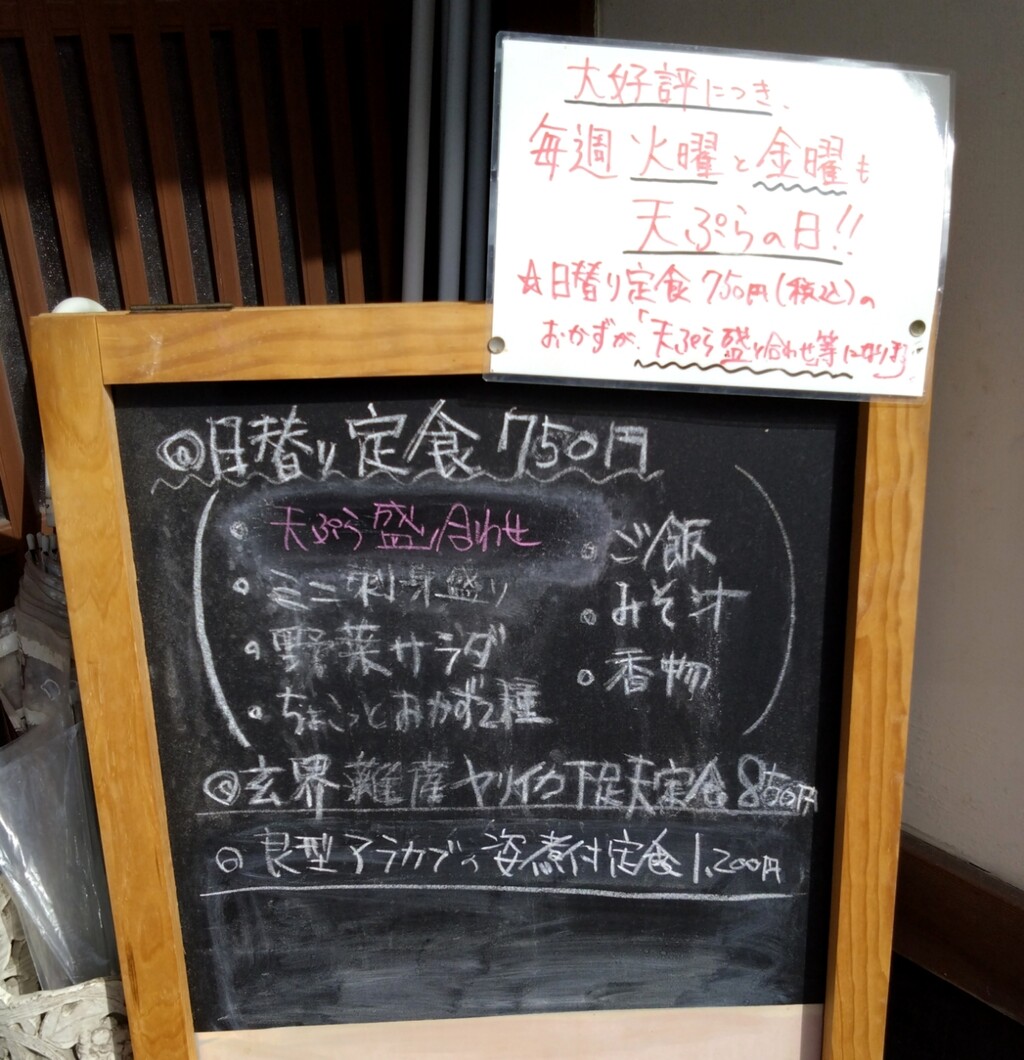 大好評につき、
毎週 火曜と金曜も
天ぷらの日!!
☆日替り定食 750円(税込)の
おかずが、「天ぷら盛り合わせ等になります
◎日替り定食 750円
・天ぷら盛り合わせ
・ミニ刺身盛り
・野菜サラダ
・ちょこっとおかず2種
・ご飯
・みそ汁
・香物
◎玄界灘産ヤリイカ下足天定食 850円
◎良型アラカブの姿煮付定食 1,200円